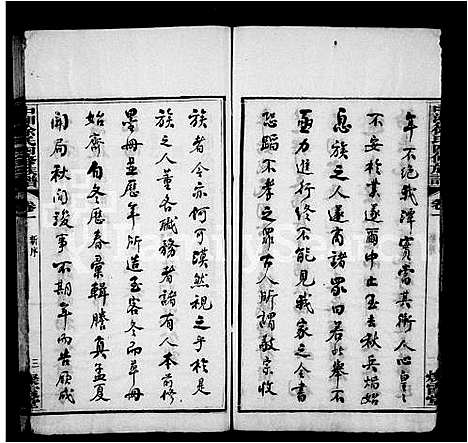 年不絕我潭實當其衝人心皇皇
不安於是遂爾中止至去秋兵燹始
息族之人遂有諸眾曰若此舉不
亟力進行終不能見我家之全書
恐蹈不孝之罪古人所謂敬宗收
族者今亦何可漠然視之乎於是
族之人董各職務者諸有人本前修
墨冊並歷年所造至客冬而草冊
始齊自冬歷春彙輯謄真孟夏
開局秋間竣事不期年而告厥成
卷一
新序
三